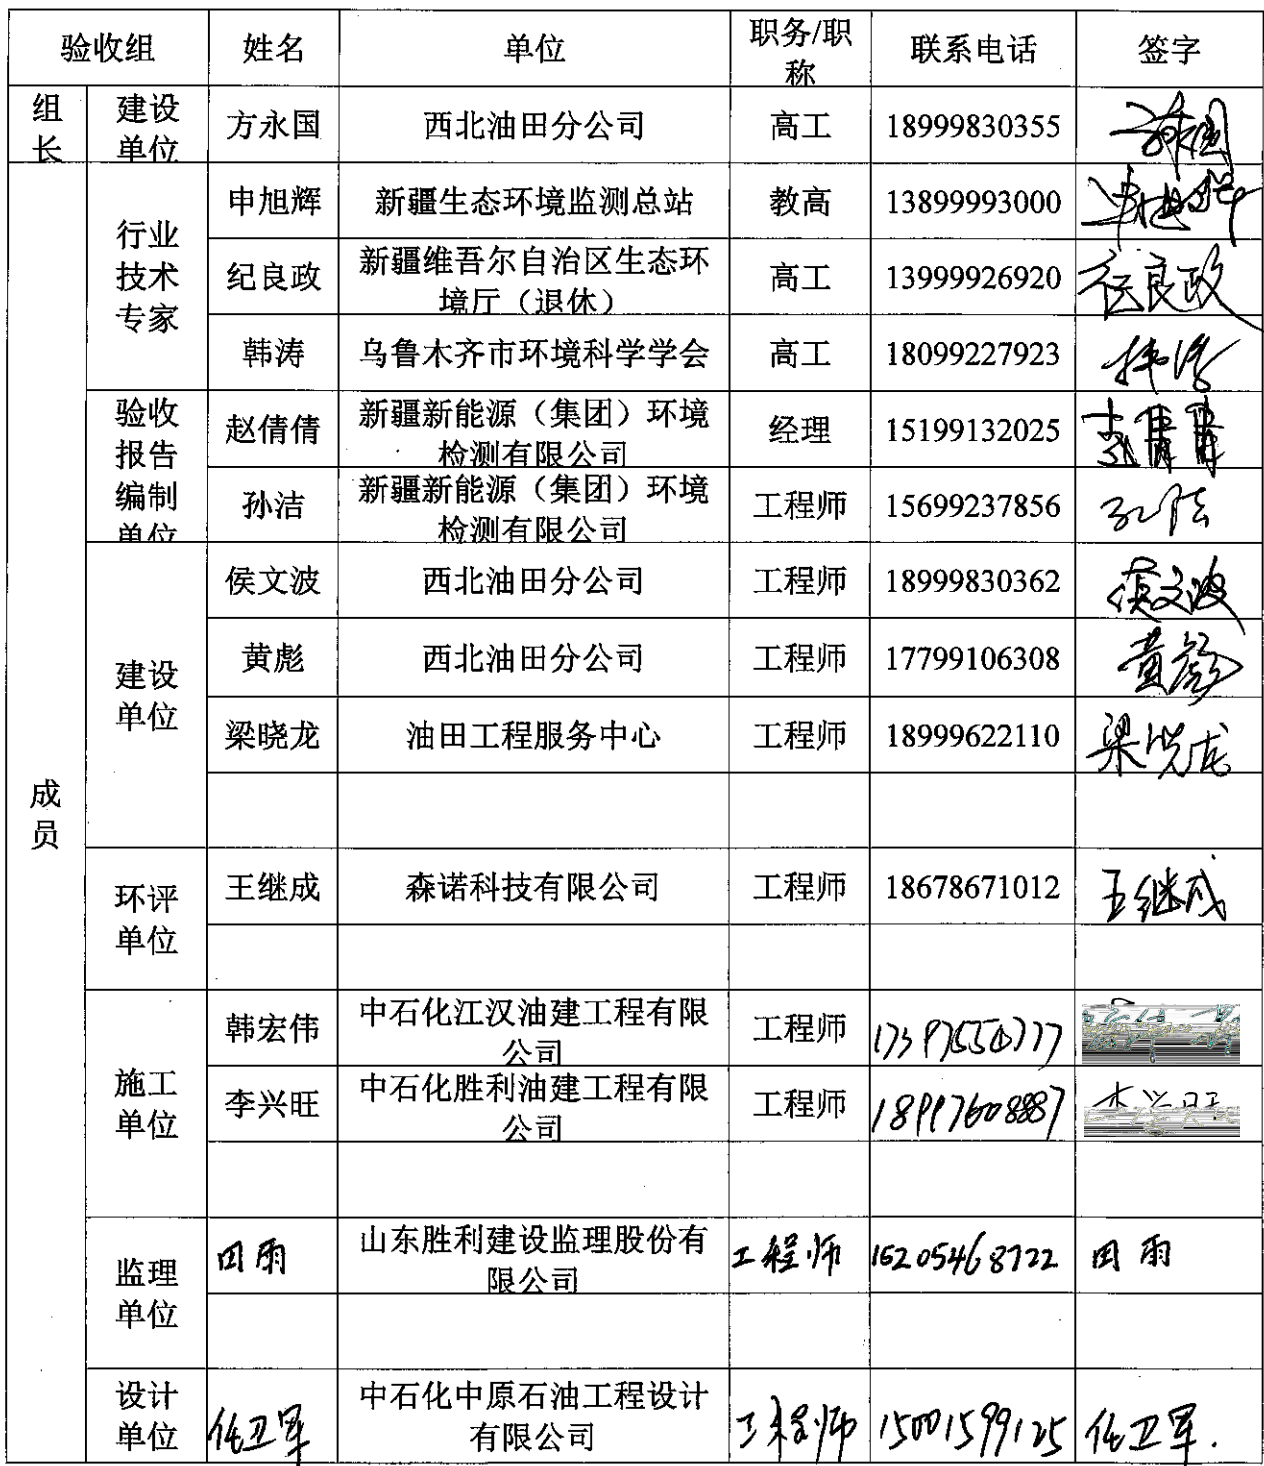 验收组 姓名 单位 职务/职称 联系电话 签字
组长 建设单位 方永国 西北油田分公司 高工 18999830355
成员 行业技术专家 申旭辉 新疆生态环境监测总站 教高 13899993000 申旭辉
纪良政 新疆维吾尔自治区生态环境厅（退休） 高工 13999926920 纪良政
韩涛 乌鲁木齐市环境科学学会 高工 18099227923 韩涛
验收报告编制单位 赵倩倩 新疆新能源（集团）环境检测有限公司 经理 15199132025
孙洁 新疆新能源（集团）环境检测有限公司 工程师 15699237856 孙洁
建设单位 侯文波 西北油田分公司 工程师 18999830362 侯文波
黄彪 西北油田分公司 工程师 17799106308 黄彪
梁晓龙 油田工程服务中心 工程师 18999622110 梁晓龙
环评单位 王继成 森诺科技有限公司 工程师 18678671012 王继成
施工单位 韩宏伟 中石化江汉油建工程有限公司 工程师
李兴旺 中石化胜利油建工程有限公司 工程师 18997608887 李兴旺
监理单位 田雨 山东胜利建设监理股份有限公司 工程师 15205468722 田雨
设计单位 任卫军 中石化中原石油工程设计有限公司 工程师 15001599125 任卫军.